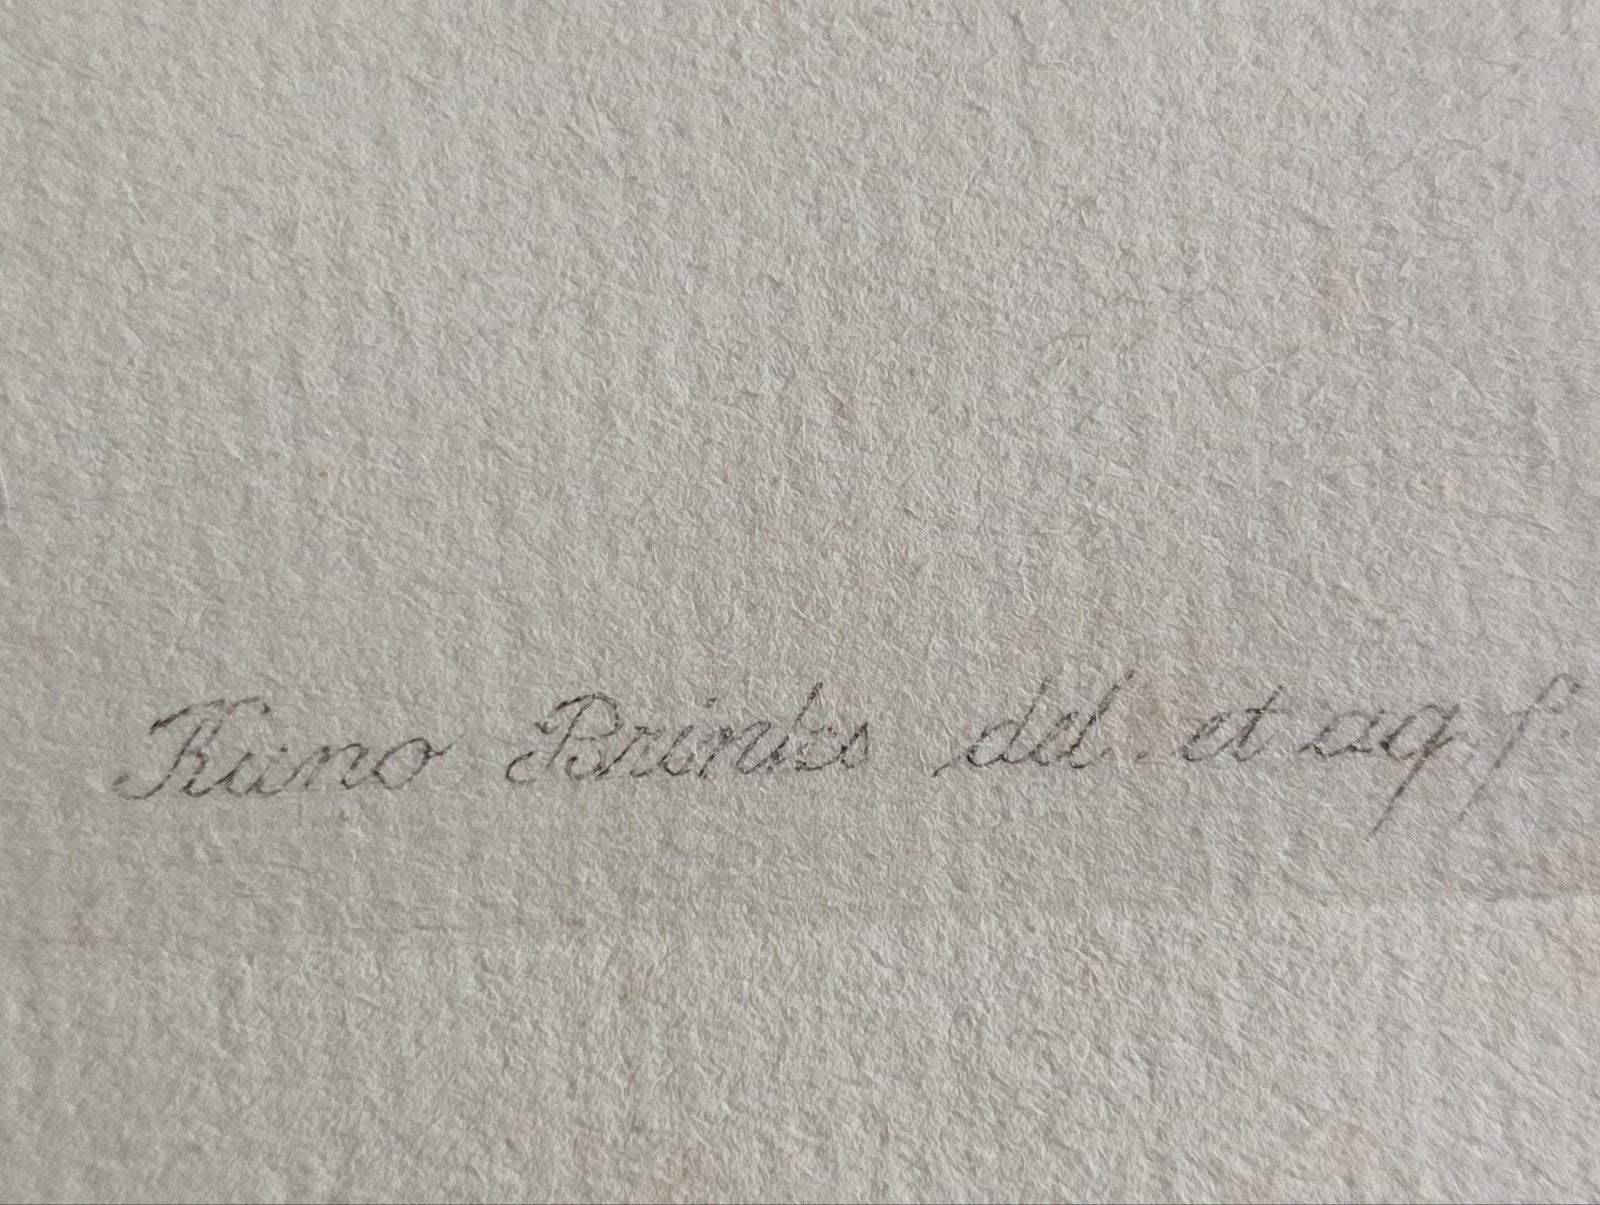 Kuno Brinks del. et aq. f.